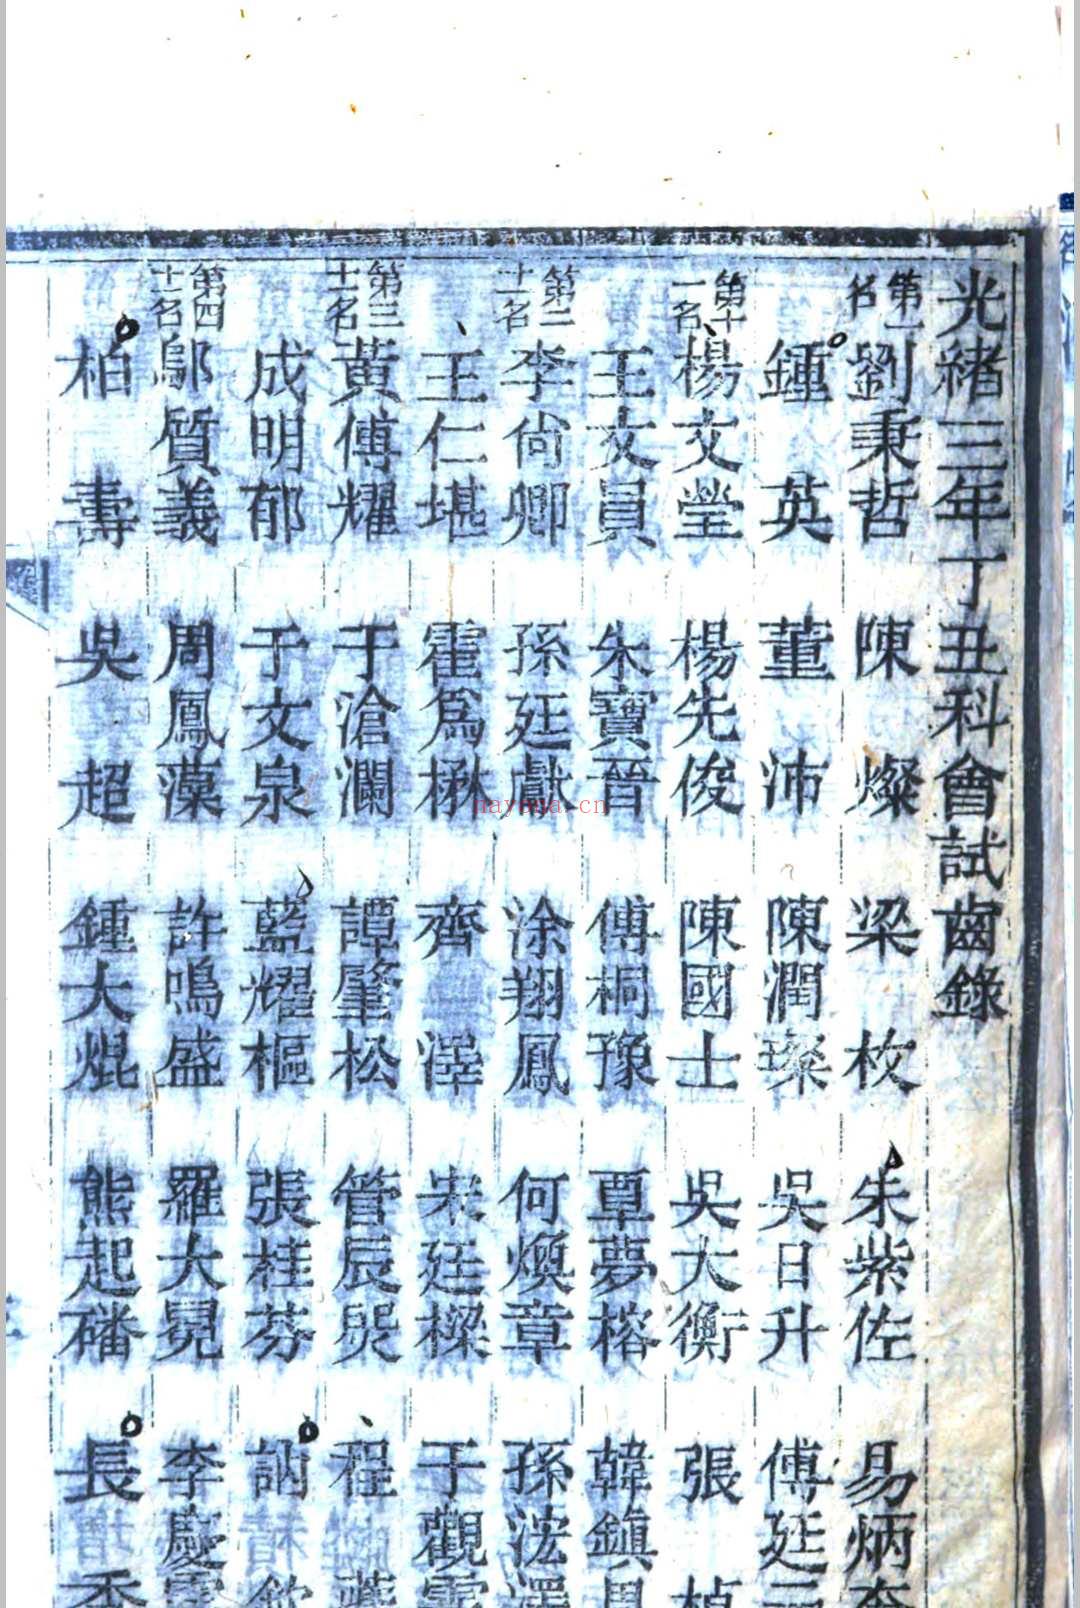 光緒三年丁丑科會試齒錄
第一名
劉秉哲 陳燦 梁枚 朱紫佐 易炳
鍾英 董沛 陳潤璨 吳日升 傅廷
第十一名
楊文瑩 楊先俊 陳國士 吳大衡 張楨
王文員 朱寶晉 傅桐豫 覃夢榕 韓鎮
第二十一名
李尙卿 孫廷獻 涂翔鳳 何煥章 孫浤澤
王仁堪 霍爲楙 齊澤 宋廷樑 于觀霖
第三十一名
黃傅耀 于滄瀾 譚肇松 管辰㷼 程
成明郁 于文泉 藍耀樞 張桂芬 訥欽
第四十一名
鄔質義 周鳳藻 許鳴盛 羅大冕 李慶
柏壽 吳超 鍾大焜 熊起磻 長
nayona.cn